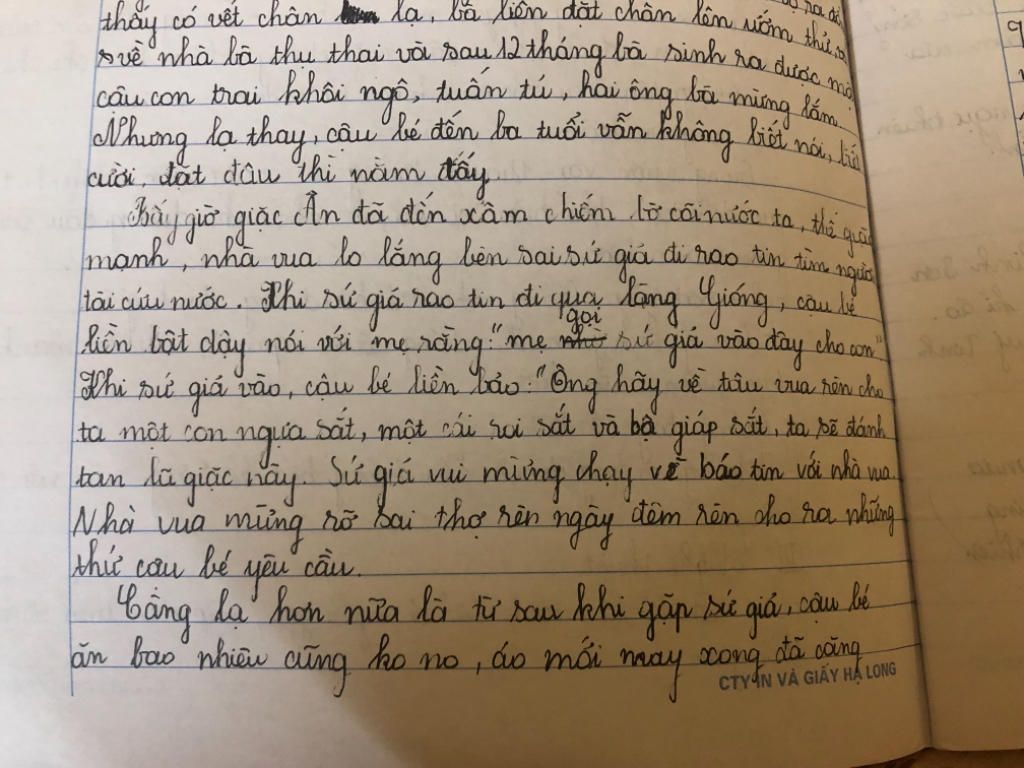 thấy có vết chân lạ, bà liền đặt chân lên ướm thử,
về nhà bà thụ thai và sau 12 tháng bà sinh ra được
cậu con trai khôi ngô, tuấn tú, hai ông bà mừng lắm.
Nhưng lạ thay, cậu bé đến ba tuổi vẫn không biết nói, biết
cười, đặt đâu thì nằm đấy
Bấy giờ giặc Ân đã đến xâm chiếm bờ cõi nước ta, thế giặc
mạnh, nhà vua lo lắng bèn sai sứ giả đi rao tin tìm người
tài cứu nước. Khi sứ giả rao tin đi qua làng Gióng, cậu bé
liền bật dậy nói với mẹ rằng: "mẹ gọi sứ giả vào đây cho con"
Khi sứ giả vào, cậu bé liền bảo: "Ông hãy về tâu vua rèn cho
ta một con ngựa sắt, một cái roi sắt và bộ giáp sắt, ta sẽ đánh
tan lũ giặc này. Sứ giả vui mừng chạy về báo tin với nhà vua.
Nhà vua mừng rỡ sai thợ rèn ngày đêm rèn cho ra những
thứ cậu bé yêu cầu.
Càng lạ hơn nữa là từ sau khi gặp sứ giả, cậu bé
ăn bao nhiêu cũng ko no, áo mới may xong đã căng
CTY IN VÀ GIẤY HẠ LONG